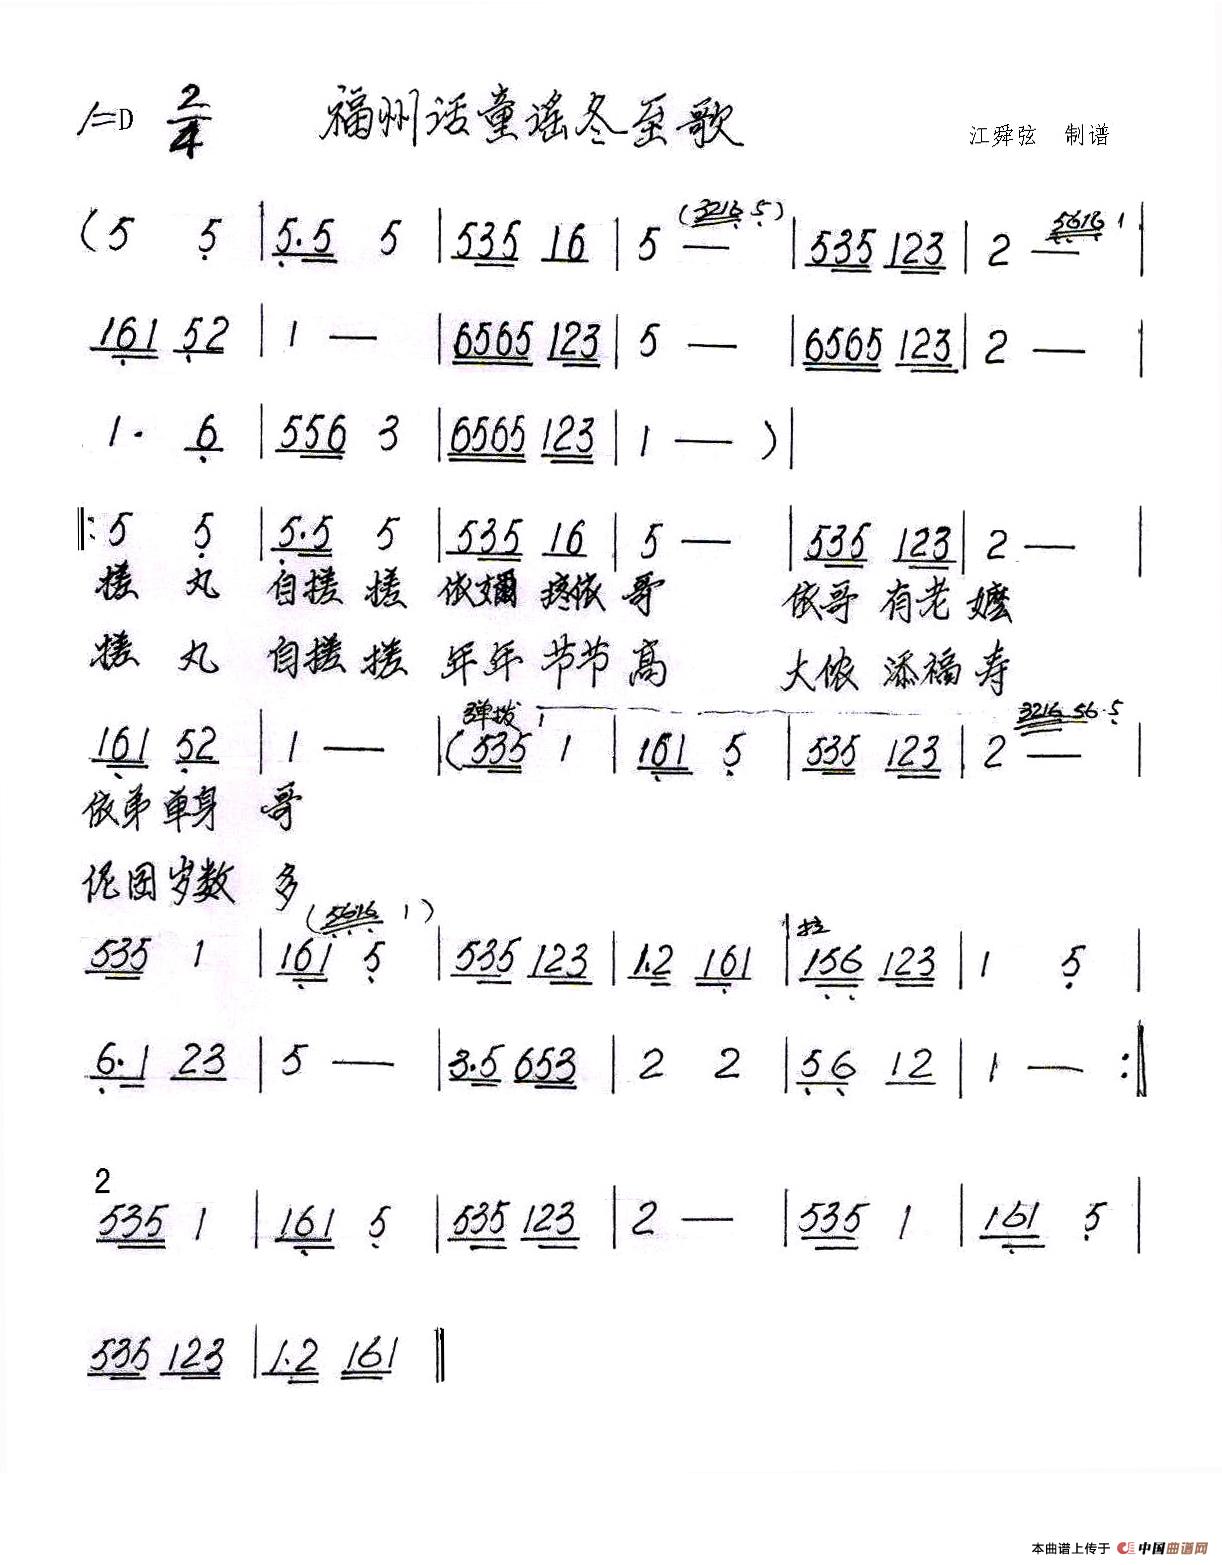 1=D 2/4 福州话童谣冬至歌
江舜弦 制谱
(3216 5) 5616 1
( 5 5 | 5.5 5 | 535 16 | 5 — | 535 123 | 2 — |
161 52 | 1 — | 6565 123 | 5 — | 6565 123 | 2 — |
1. 6 | 556 3 | 6565 123 | 1 — ) |
‖: 5 5 | 5.5 5 | 535 16 | 5 — | 535 123 | 2 — |
搓 丸 自搓 搓 依嬭 疼依 哥 依哥 有老 嬷
搓 丸 自搓 搓 年年 节节 高 大侬 添福 寿
弹拨 3216 56.5
161 52 | 1 — | (535 1 | 161 5 | 535 123 | 2 — |
依弟 单身 哥
伲囝 岁数 多
(5616 1) 拉
535 1 | 161 5 | 535 123 | 1.2 161 | 156 123 | 1 5 |
6.1 23 | 5 — | 3.5 653 | 2 2 | 56 12 | 1 — :‖
2
535 1 | 161 5 | 535 123 | 2 — | 535 1 | 161 5 |
535 123 | 1.2 161 ‖
本曲谱上传于 中国曲谱网